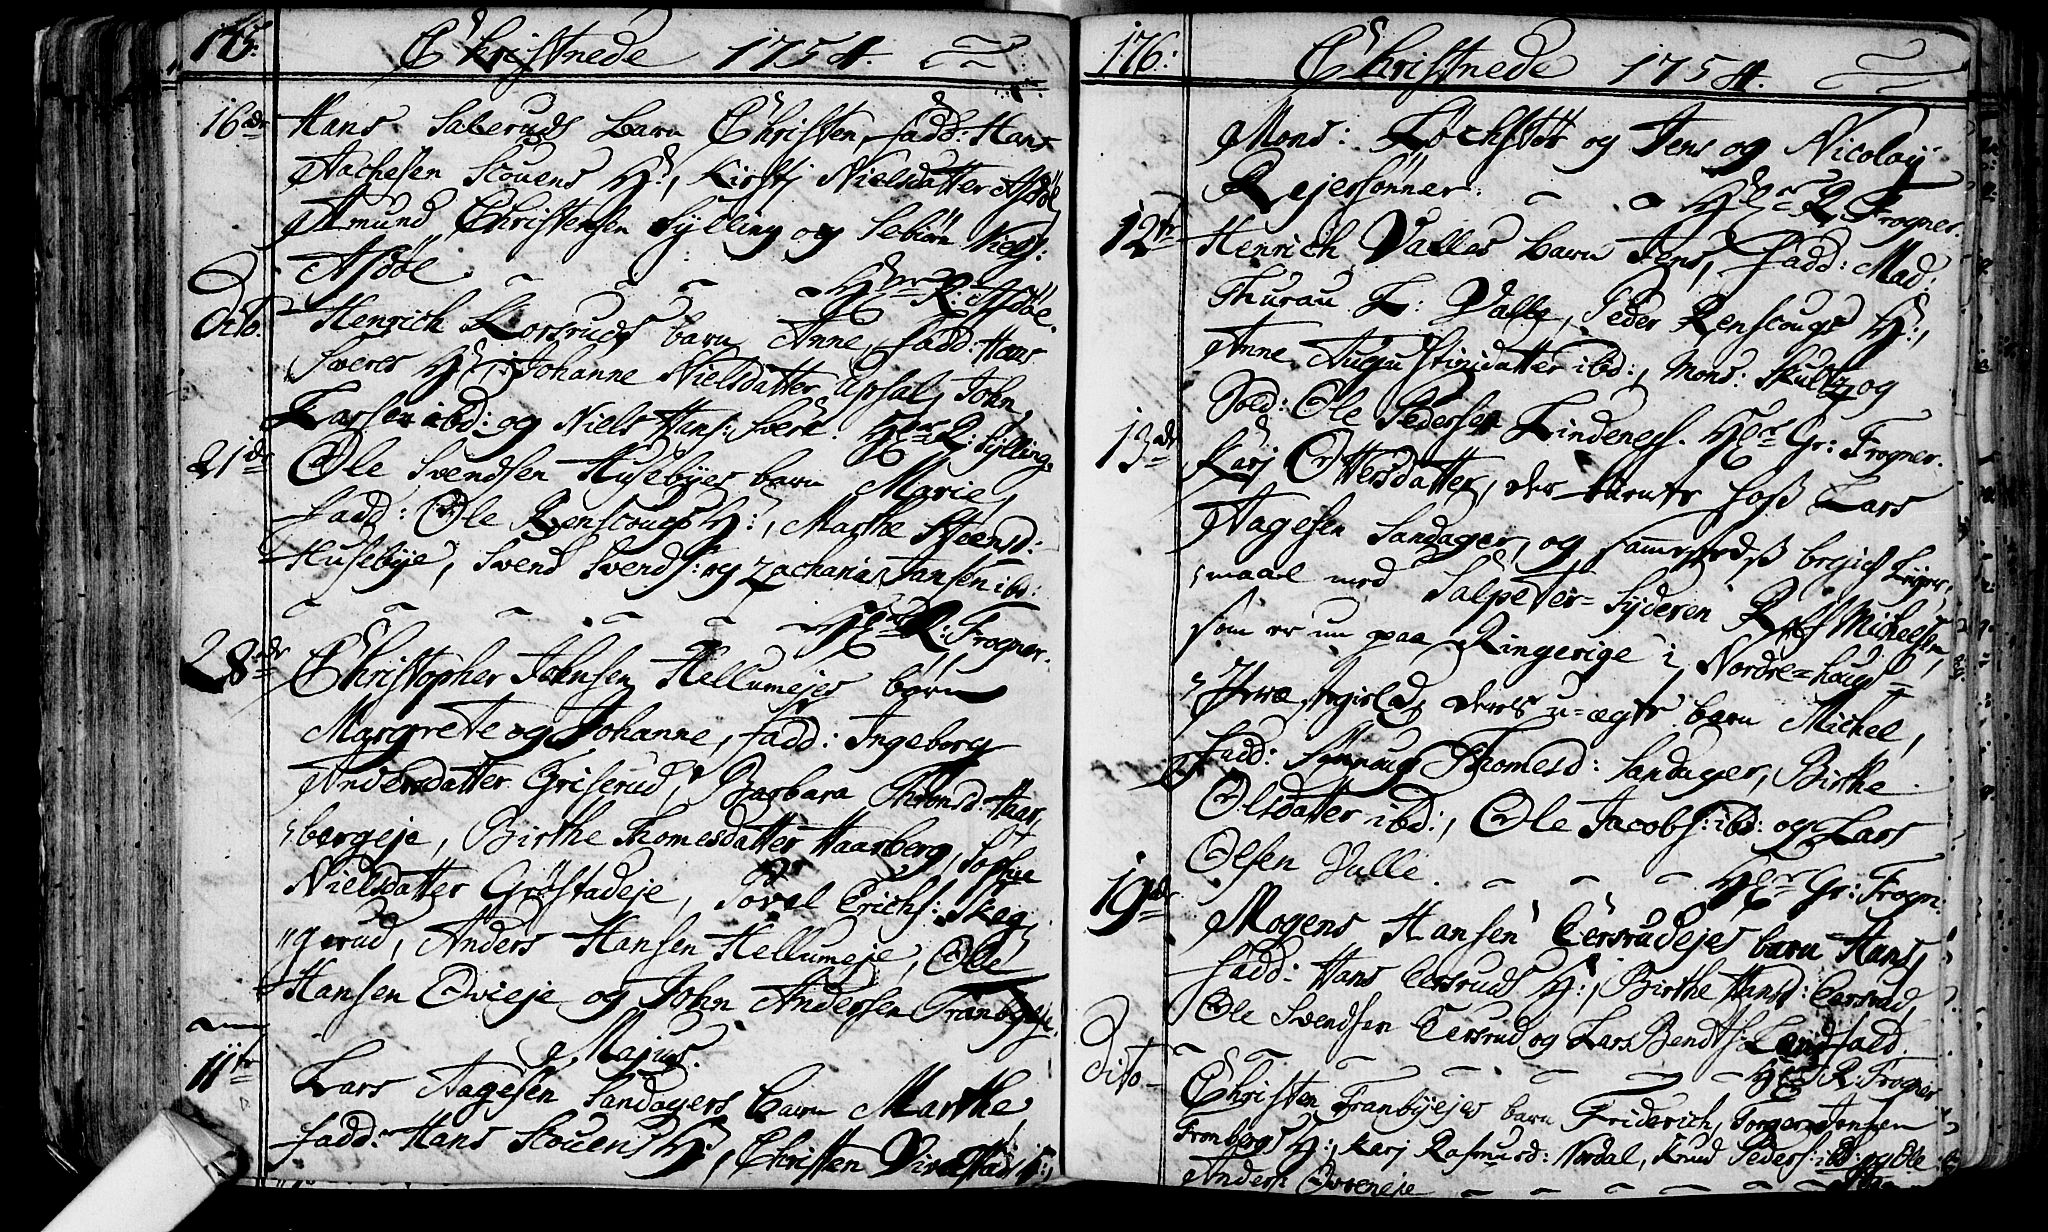 175:
Christnede 1754.
16de Hans Sateruds barn Christen, fadd: Hans
Aachesen Scouens H:, Kirsti Nielsdatter Asdöl,
Amund Christensen Sylling og Sebiörn Niels:
Asdöl. H R: Asdöl.
Dito. Henrich Korsruds barn Anne, fadd: Hans
Sveres H:, Johanne Nielsdatter Upsal, John
Larsen ibd: og Niels Hans: Svere. R: Sylling.
21de Ole Svendsen Husebyes barn Marie,
fadd: Ole Renscougs H:, Marthe Steensd:
Husebye, Svend Svends: og Zacharias Jansen ibd:
R: Frogner.
28de Christopher Johnsen Hellumejes börn
Margrete og Johanne, fadd: Ingeborg
Andersdatter Griserud, Barbara Thronsd: Haar,
bergeje, Birthe Thomesdatter Haarberg, Sophie
Nielsdatter Gröstadeje, Povel Erichs: Skeg,
gerud, Anders Hansen Hellumeje, Ole
Hansen Ovieje og John Andersen Tranbyeje.
Majus.
11te Lars Aagesen Sandagers barn Marthe
fadd: Hans Scouens H:, Christen
176:
Christnede 1754.
Mons: Lochstör og Jens og Nicolay
Rejersönner. R. Frogner.
12te Henrich Valles barn Jens, fadd: Mad:
Thurau L: Valle, Peder Renscougs H:,
Anne Augustinidatter ibd:, Mons: Skultz og
Sold: Ole Pedersen Lindenes. Gr: Frogner.
13de Karj Ottersdatter, der tiente hos Lars
Aagesen Sandager, og sammesteds begick Leyer,
maal med Salpeter-Syderen Rolf Michelsen,
som er nu paa Ringerige i Nordre-houg
Præstegield, deres u-ægte barn Michel,
fadd: Sönnoug Thomesd: Sandager, Birthe
Olsdatter ibd:, Ole Jacobs: ibd: og Lars
Olsen Valle. Gr: Frogn:
19de Mogens Hansen Eersrudejes barn Hans,
fadd: Hans Eersruds H:, Birthe Hansd: Eersrud,
Ole Svendsen Eersrud og Lars Bendts:
R: Frogner
Dito Christen Tranbyejes barn Friderich, Torger Jensen
Tronbergs H:, Karj Rasmusd: Nordal, Knud Peders: ibd: og Ole
Anders: